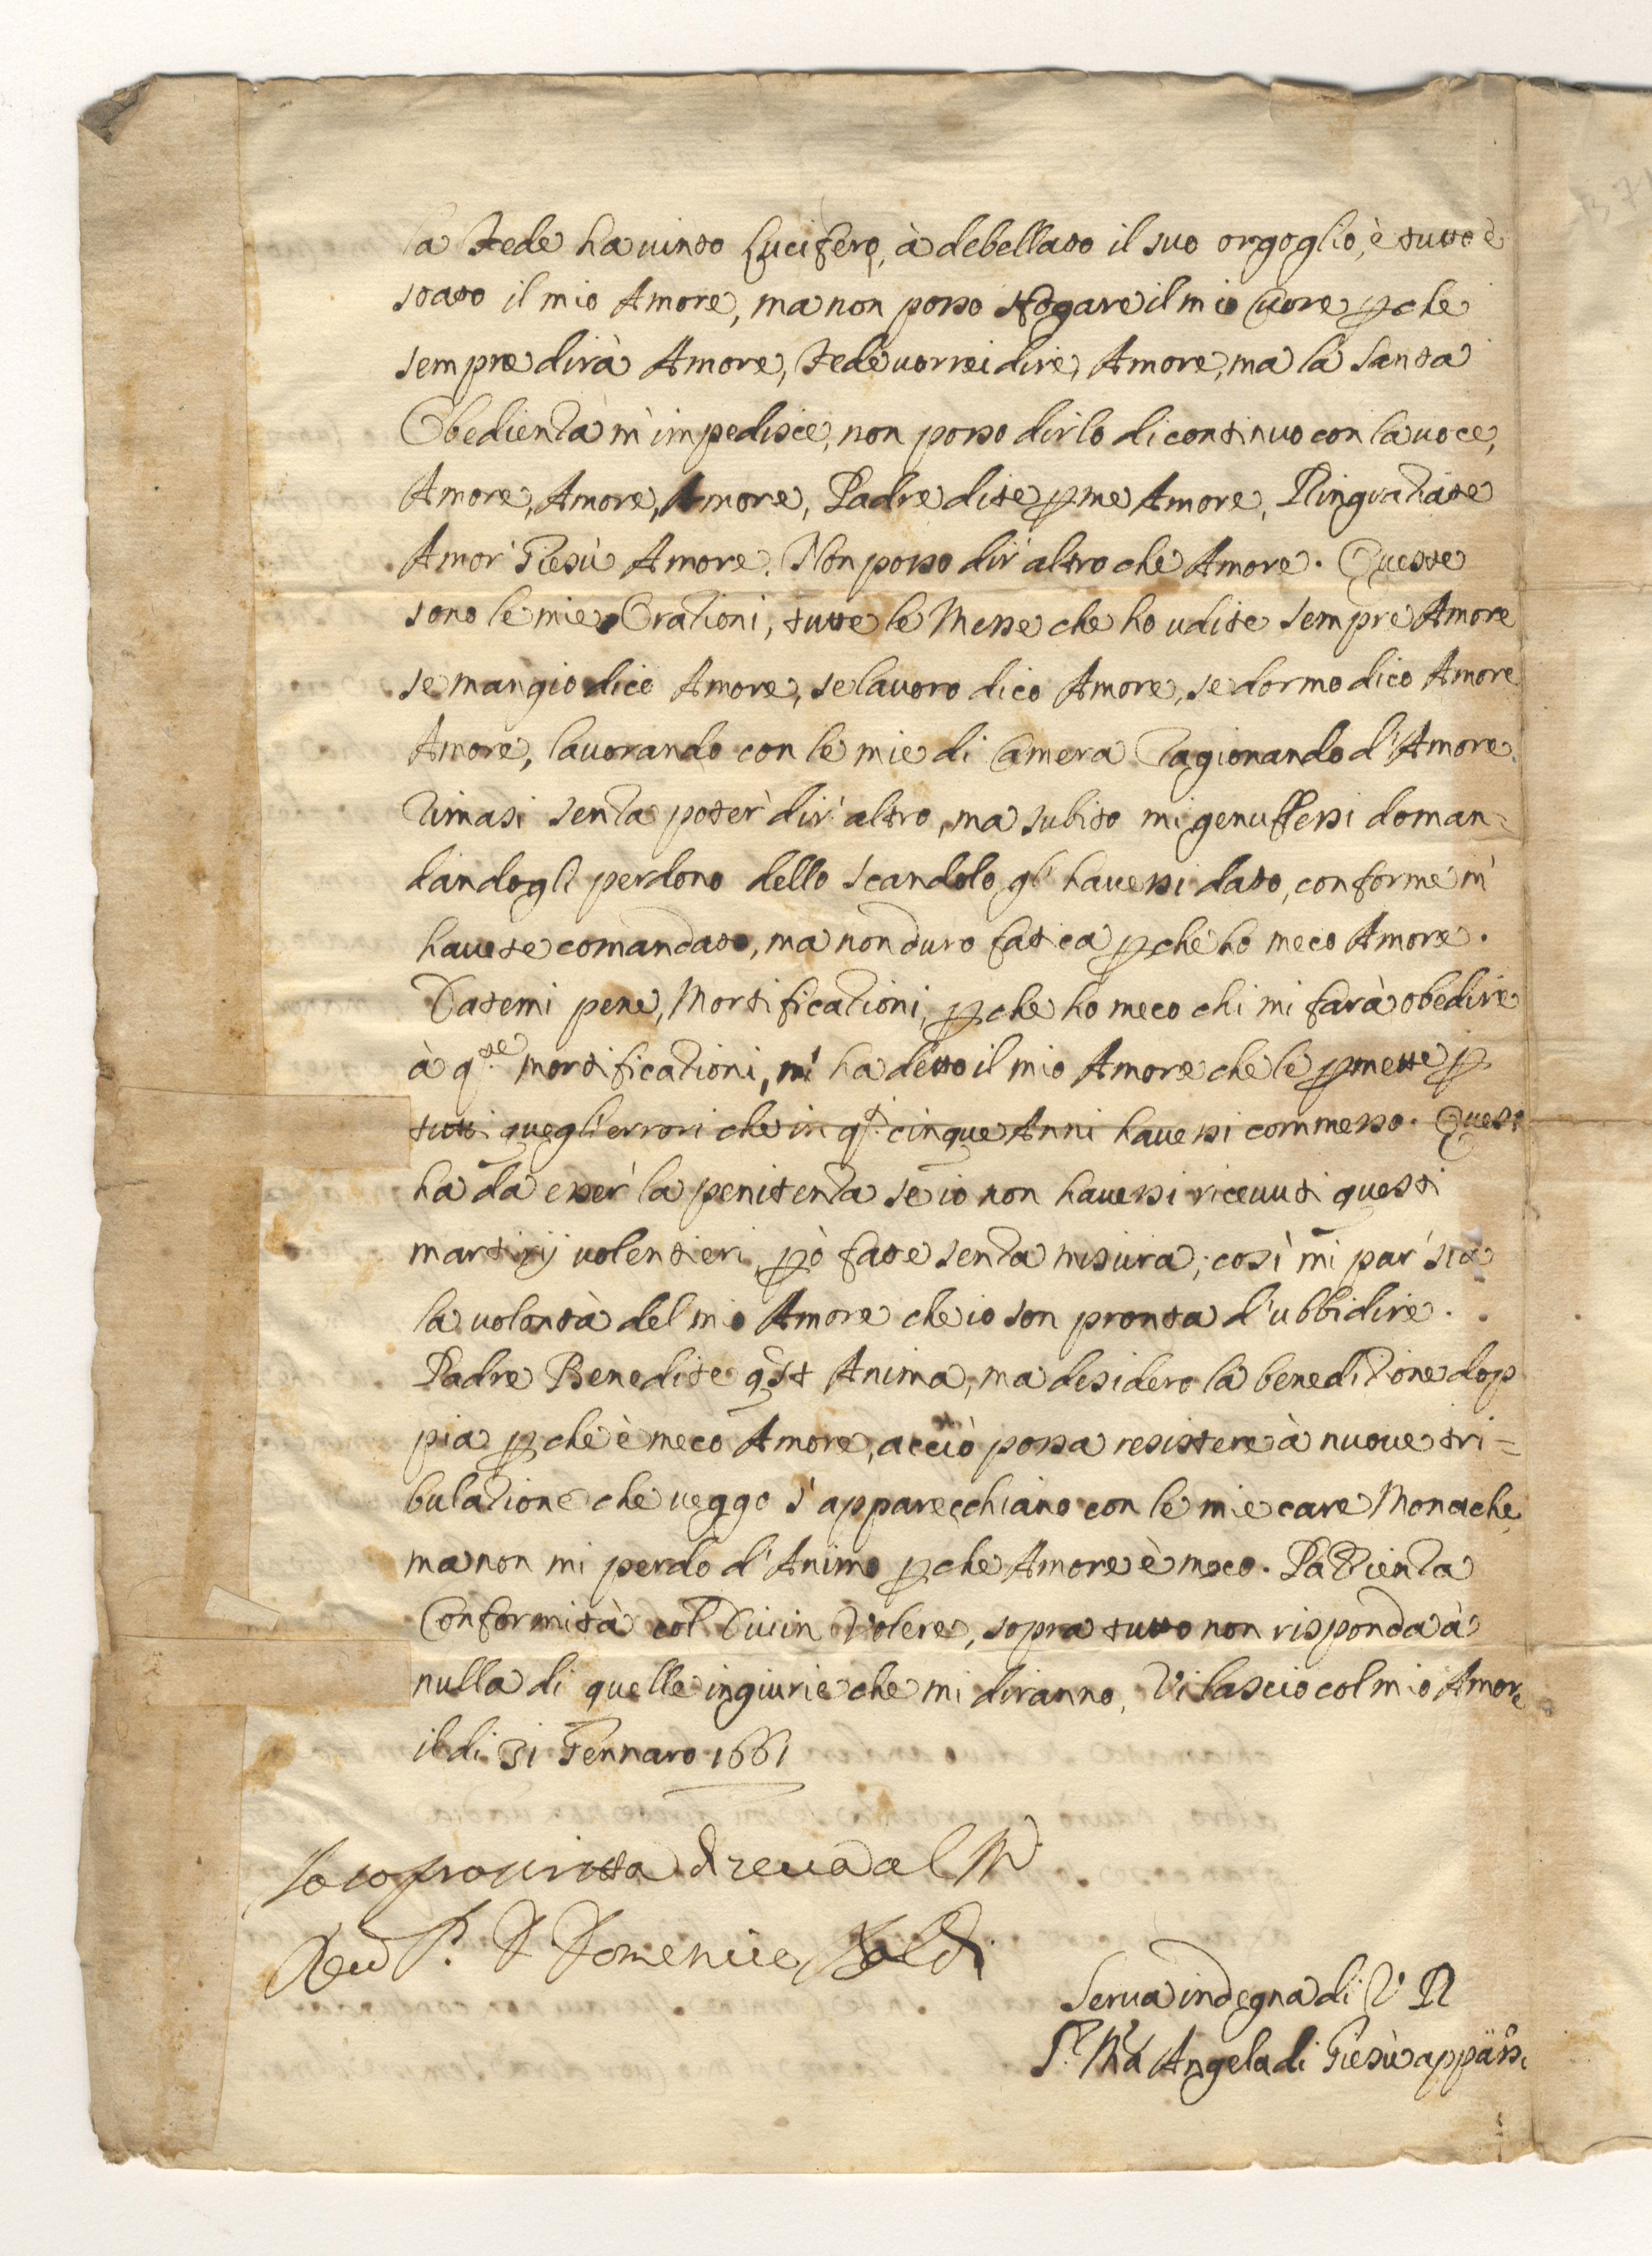 la Fede ha uinto Lucifero, à debellato il suo orgoglio, è tutto è
stato il mio Amore, ma non posso sfogare il mio Cuore pche
sempre dirà Amore, Fede uorrei dire, Amore, ma la Santa
Obedienza m'impedisce, non posso dirlo di continuo con la uoce,
Amore, Amore, Amore, Padre dite p me Amore, Ringratiate
Amor' Giesù Amore. Non posso dir' altro che Amore. Queste
sono le mie Orationi, tutte le Messe che ho udite sempre Amore
se mangio dico Amore, se lauoro dico Amore, se dormo dico Amore
Amore, lauorando con le mie di Camera ragionando d'Amore.
rimasi senza poter' dir' altro, ma subito mi genuflessi doman=
dandogli perdono dello scandolo, gl' hauessi dato, conforme m'
hauete comandato, ma non duro fatica pche ho meco Amore.
Datemi pene, Mortificationi, pche ho meco chi mi farà obedire
à q.ste mortificationi, mi ha detto il mio Amore che le pmette p
tutti quegli errori che in q.ti cinque Anni hauessi commesso. Questa
ha da esser' la penitenza se io non hauessi riceuuti questi
martirij uolentieri, pò fate senza misura, così mi par' sia
la uolontà del mio Amore che io son pronta d'ubbidire.
Padre Benedite qsta Anima, ma desidero la beneditione dop
pia pche è meco Amore, acciò possa resistere à nuoue tri=
bulatione che ueggo s'apparecchiano con le mie care Monache,
ma non mi perdo d'Animo pche Amore è meco. Patienza
Conformità col Diuin Volere, sopra tutto non risponda à
nulla di quelle ingiurie che mi diranno, Vi lascio col mio Amore
il di 31 Gennaro 1661
la soprascritta diceua al M.
Reu P. F Domenico
Serua indegna di V R
S.r M.a Angela di Giesù